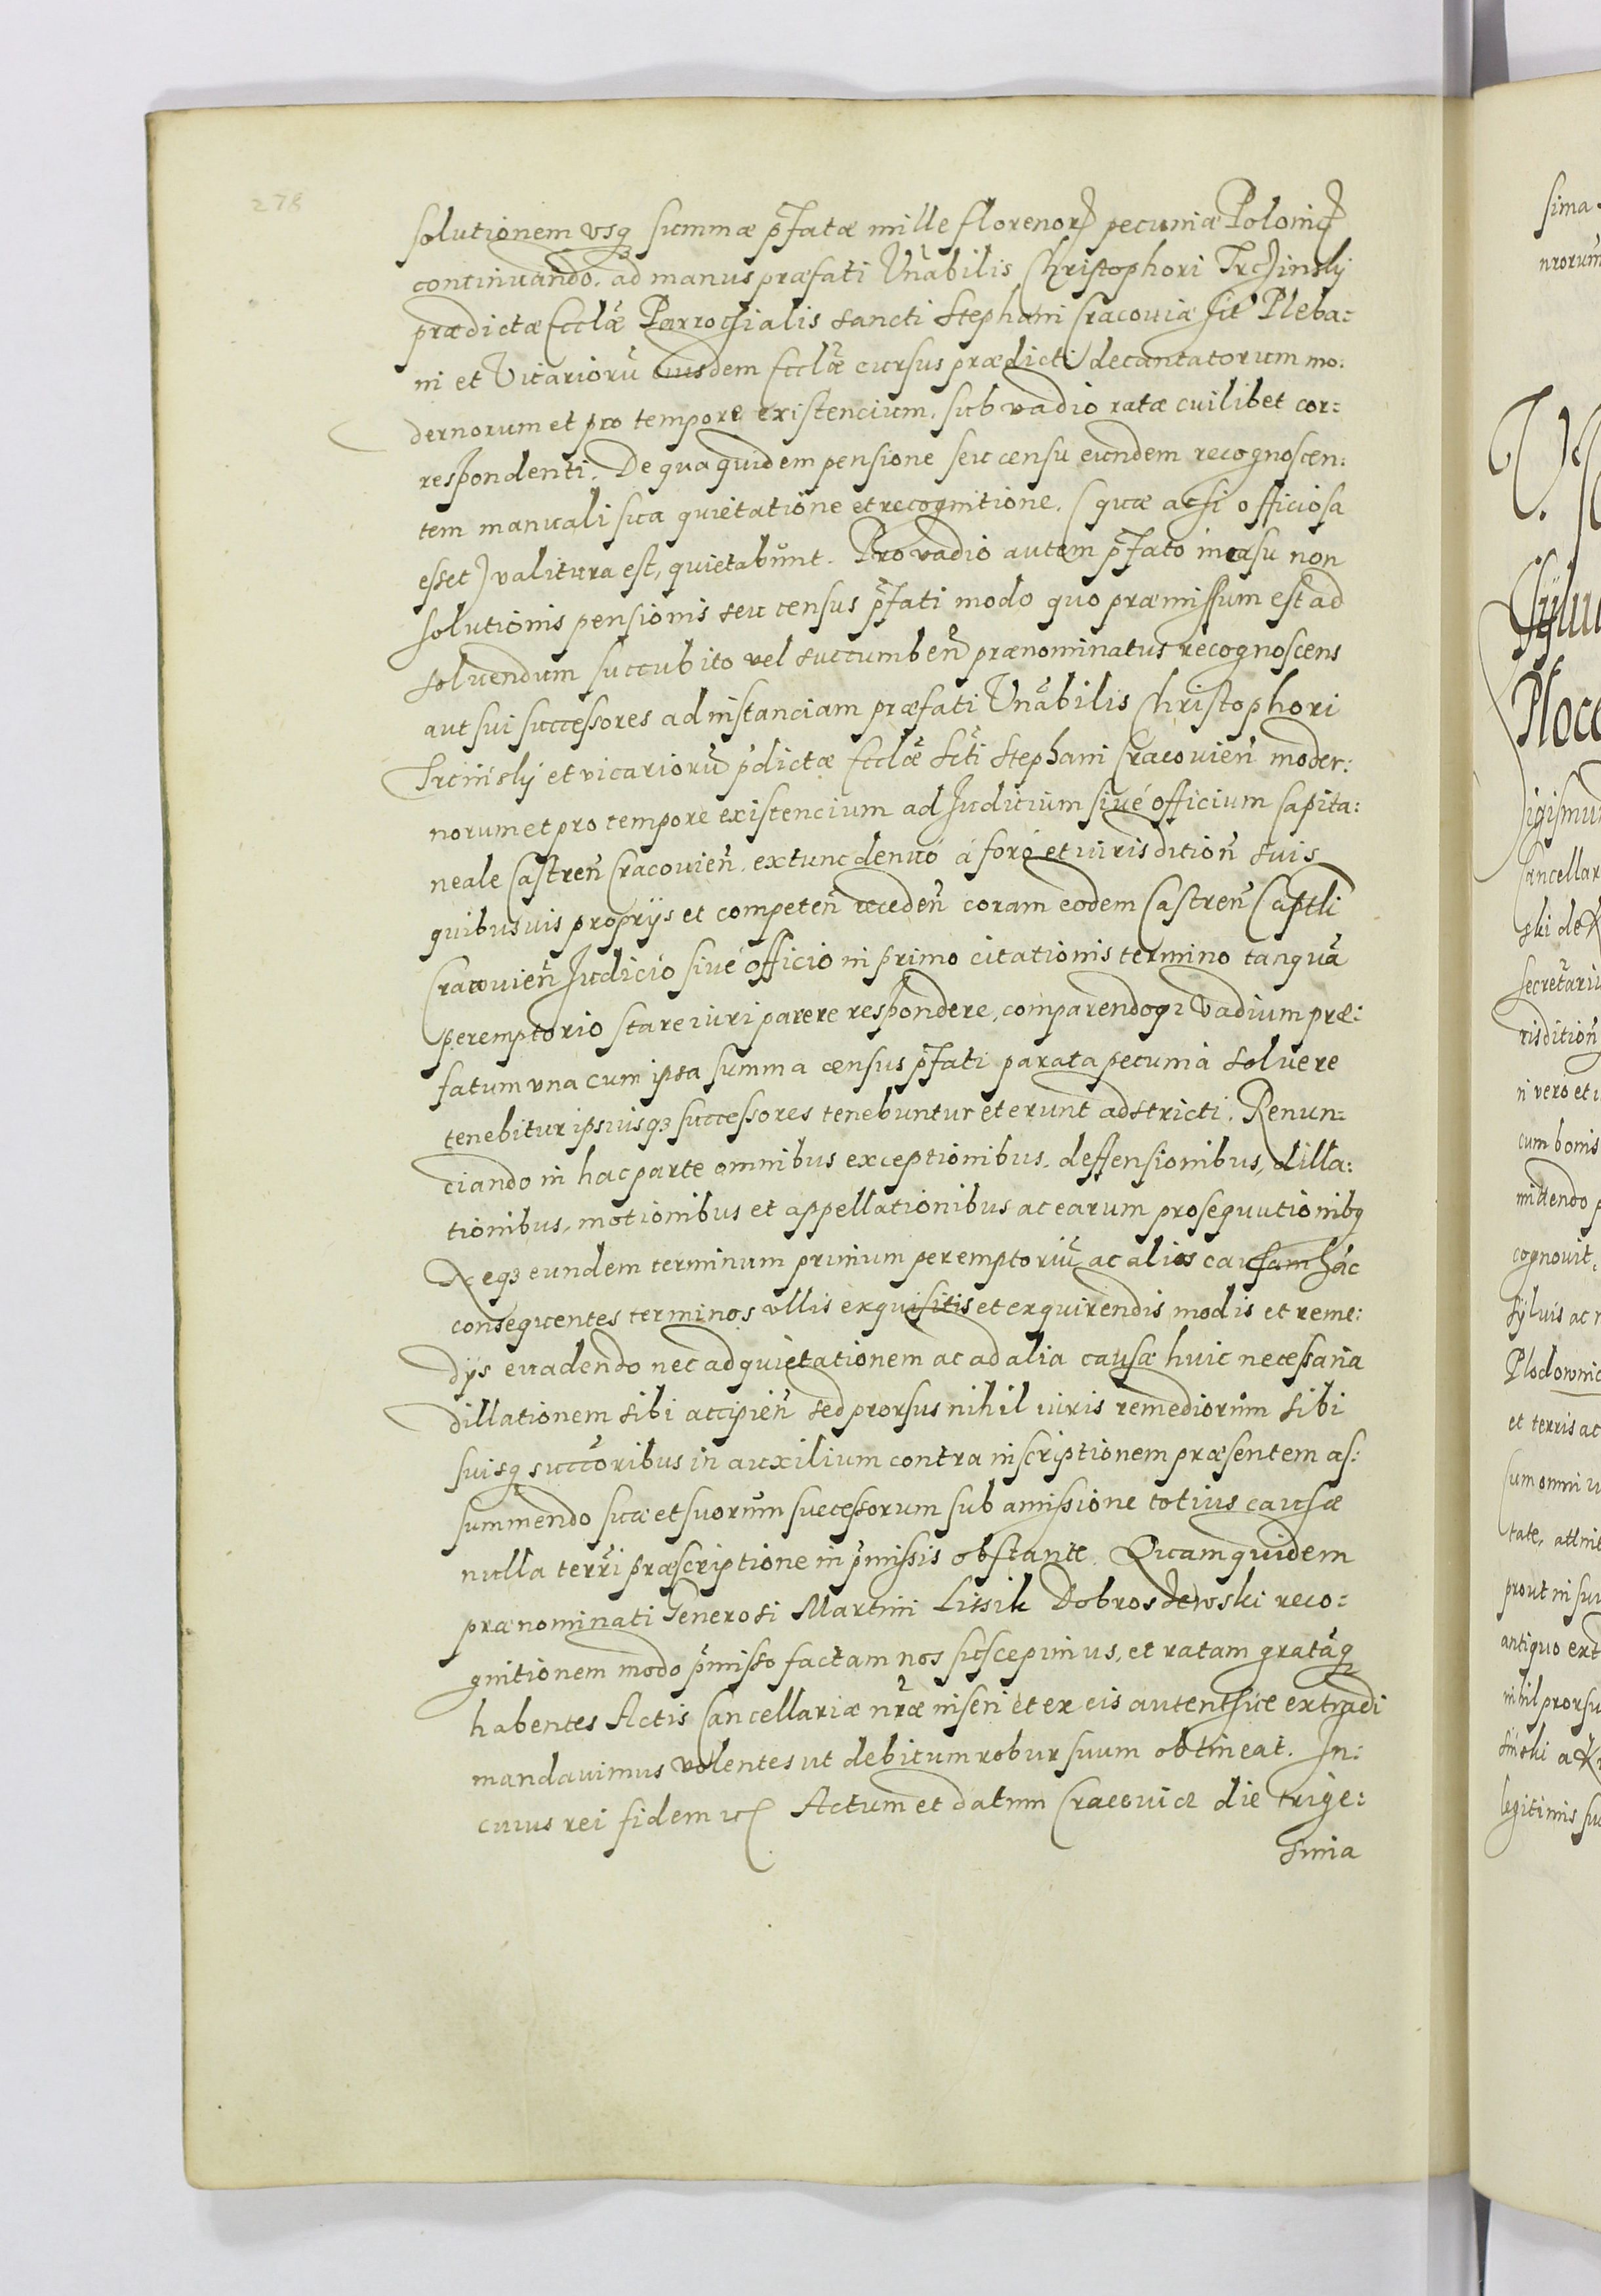 278
solutionem vsq summæ p̃fatæ mille florenor pecuniæ Polonic
continuando. ad manus præfati Vnãbilis Christophori Trczinsky
prædictæ Ecclæ Parrochialis sancti Stephani Cracouiæ sit Pleba:
ni et Vicarioru eiusdem Ecclæ cursus prædicti decantatorum mo:
dernorum et pro tempore existencium. sub vadio ratæ cuilibet cor:
respondenti. De qua quidem pensione seu censu eundem recognoscen:
tem manuali sua quietatione et recognitione. (quæ acsi officiosa
esset) valitura est, quietabunt. Pro vadio autem p̃fato in casu non
solutionis pensionis seu census p̃fati modo quo præmissum est ad
soluendum succubito vel succumbeñ prænominatus recognoscens
aut sui successores ad instanciam præfati Vnãbilis Christophori
Trcinsky et vicarioru p̃dictæ Ecclæ Scti Stephani Cracouień moder:
norum et pro tempore existencium ad Judicium siué officium Capita:
neale Castreñ Cracouień. extunc denuó á foro et iurisditioñ suis
quibusuis proprijs et competeñ recedeñ coram eodem Castreñ Captli
Cracouień Judicio siué officio in primo citationis termino tanquã
peremptorio stare iuri parere respondere, comparendoq3 Vadium præ:
fatum vna cum ipsa summa census p̃fati parata pecunia soluere
tenebitur ipsiusq3 successores tenebuntur et erunt adstricti. Renun:
ciando in hac parte omnibus exceptionibus. deffensionibus, dilla:
tionibus. motionibus et appellationibus ac earum prosequutionibq
Neq3 eundem terminum primum peremptoriũ ac alios causam hác
consequentes terminos vllis exquisitis et exquirendis modis et reme:
dijs euadendo nec ad quietationem ac ad alia causæ huic necessaria
dillationem sibi accipień sed prorsus nihil iuris remediorum sibi
suisq succõribus in auxilium contra inscriptionem præsentem as:
summendo suæ et suorum successorum sub amissione totius causæ
nulla terri præscriptione in p̃missis obstante. Quam quidem
prænominati Generosi Martini Lissik Dobrosdewski reco:
gnitionem modo p̃misso factam nos suscepimus, et ratam gratãq
habentes Actis Cancellariæ nr̃æ inseri et ex eis autenthice extradi
mandauimus volentes ut debitum robur suum obtineat. In:
cuius rei fidem etc Actum et datum Cracouiæ die trige:
sima